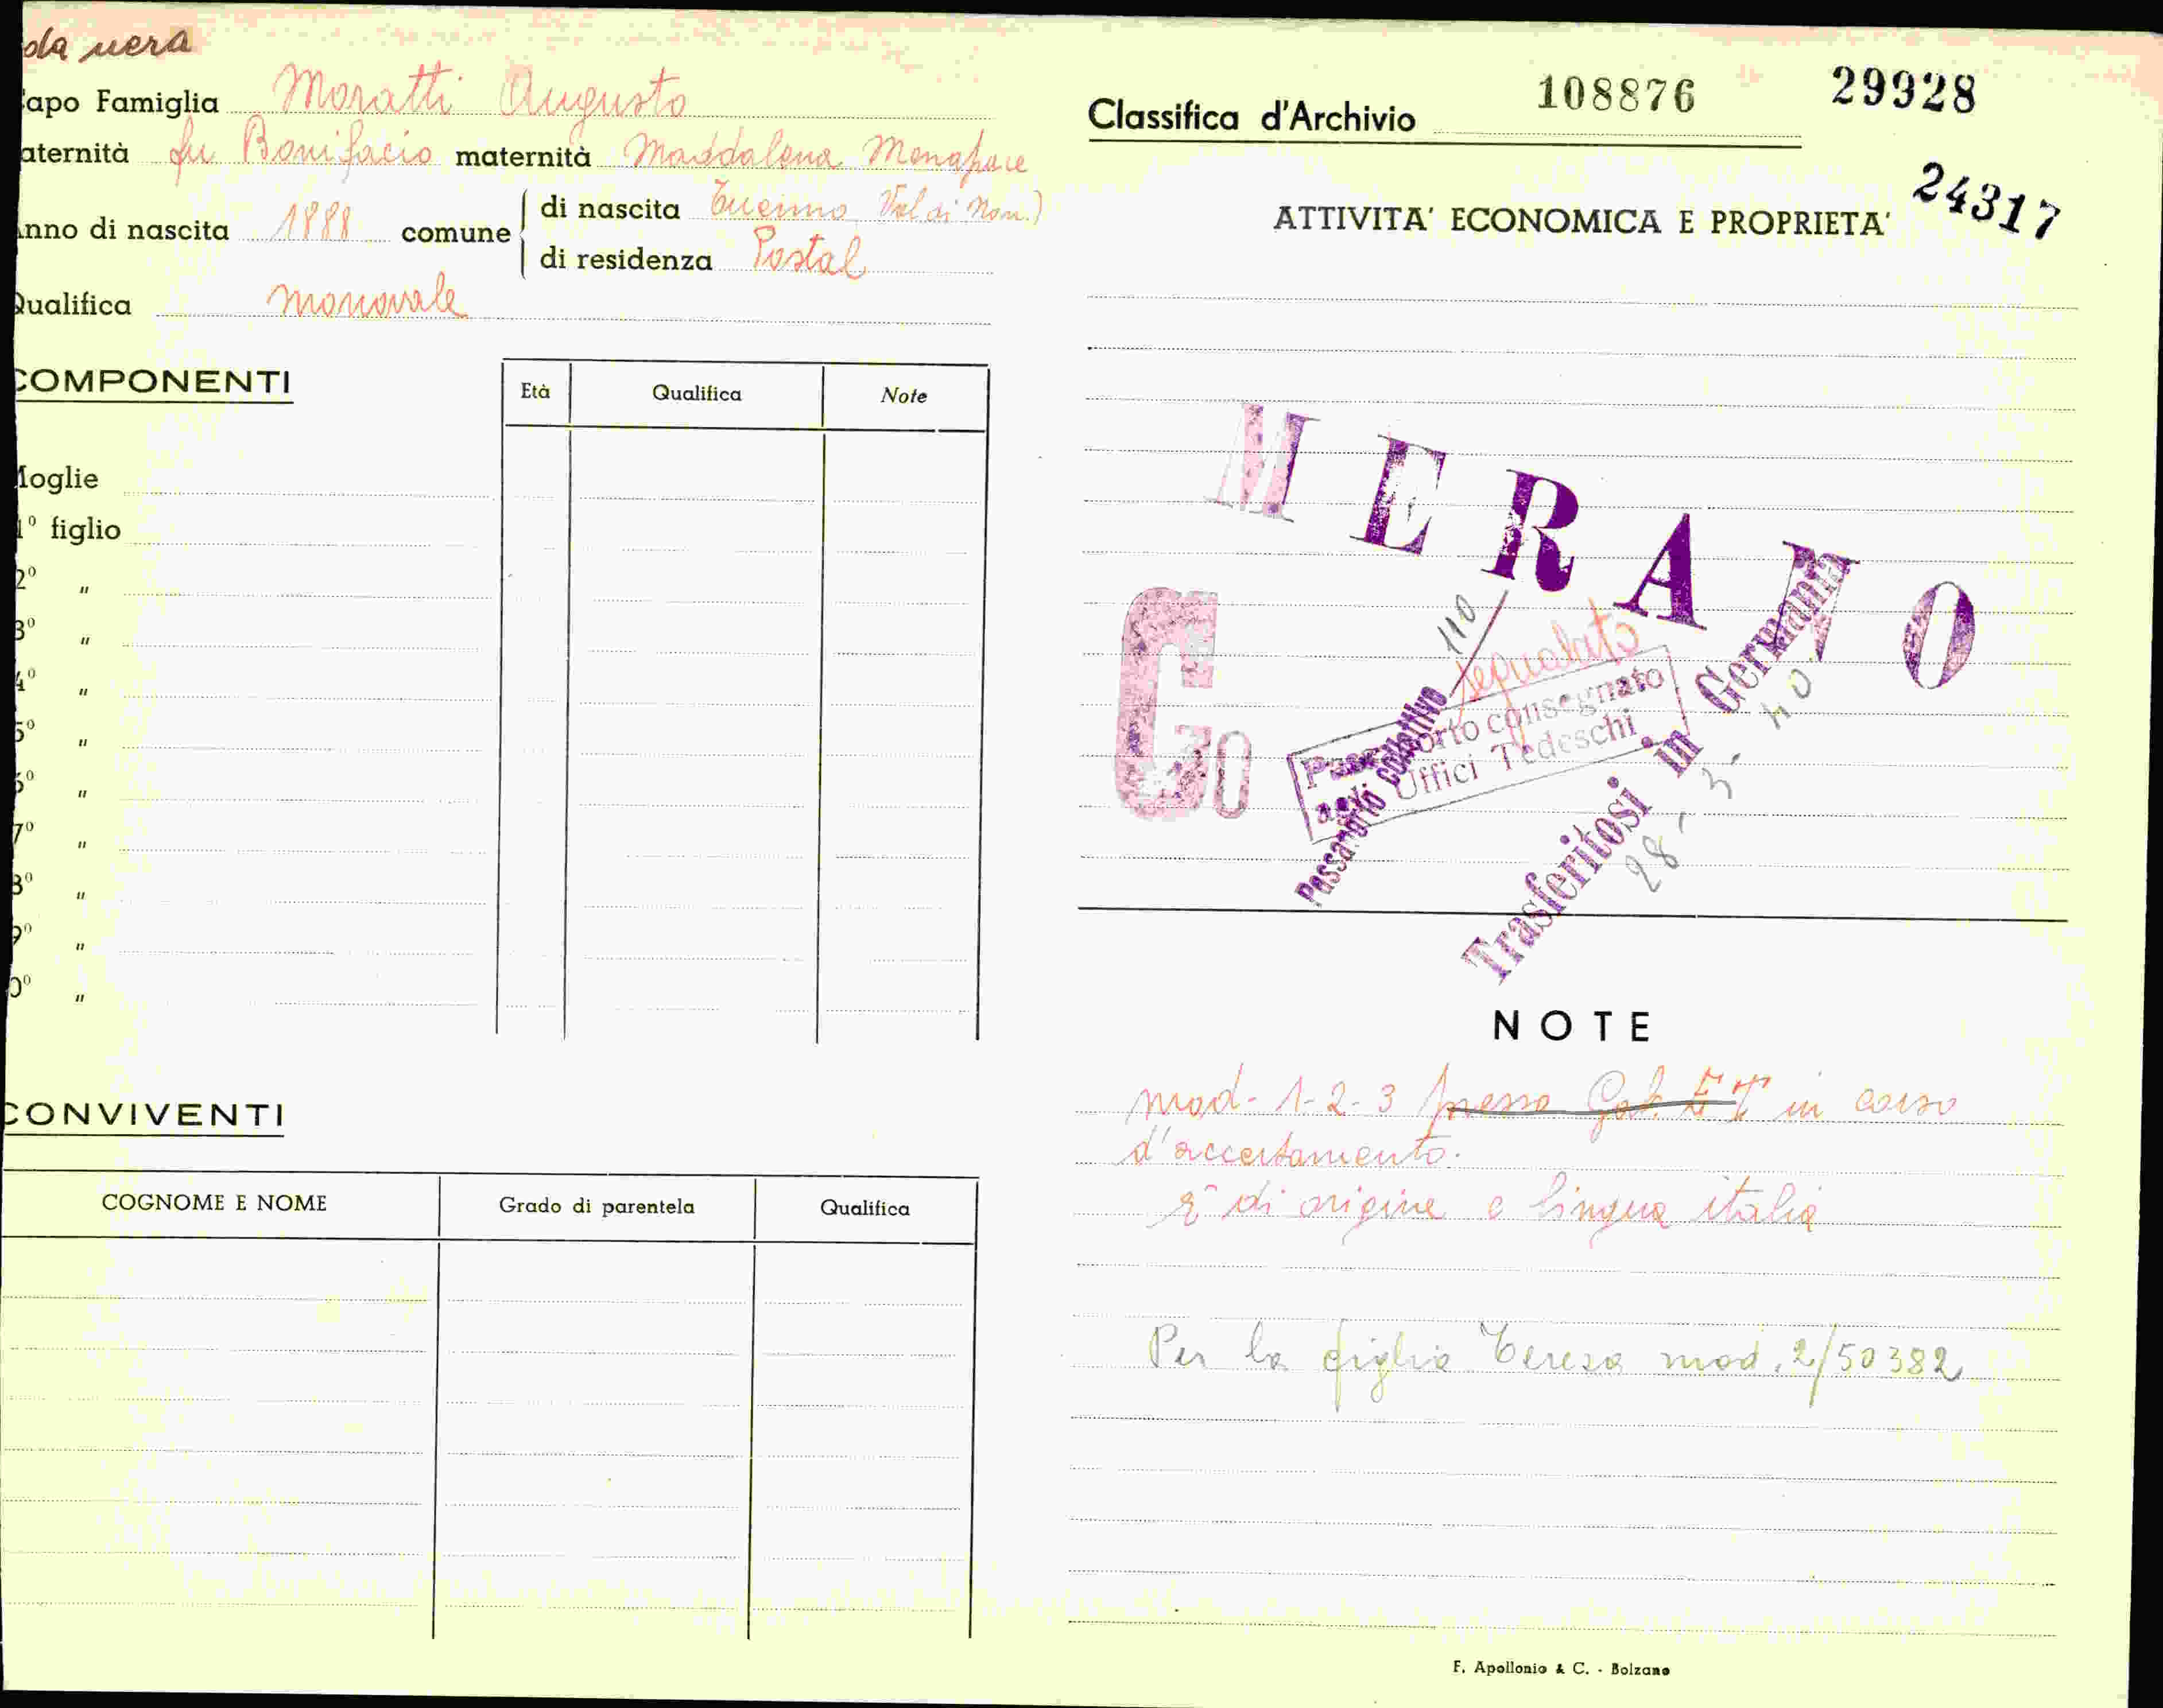 da nera
apo Famiglia Moratti Augusto
aternità fu Bonifacio maternità Maddalena Menapace
nno di nascita 1888 comune
di nascita Tuenno Val di Non.)
di residenza Postal
Qualifica manovale
COMPONENTI
Età Qualifica Note
oglie
1º figlio
2º "
3º "
4º "
5º "
6º "
7º "
8º "
9º "
0º "
CONVIVENTI
COGNOME E NOME Grado di parentela Qualifica
Classifica d'Archivio 108876 29928
24317
ATTIVITA' ECONOMICA E PROPRIETA'
MERANO
G
30
110
separato
Passaporto consegnato
agli Uffici Tedeschi
Passaporto collettivo
Trasferitosi in Germania
28 - 3 - 40
NOTE
mod - 1 - 2 - 3 presso Gab. E T in corso
d'accertamento.
È di origine e lingua italia
Per la figlia Teresa mod. 2/50382
F. Apollonio & C. - Bolzano